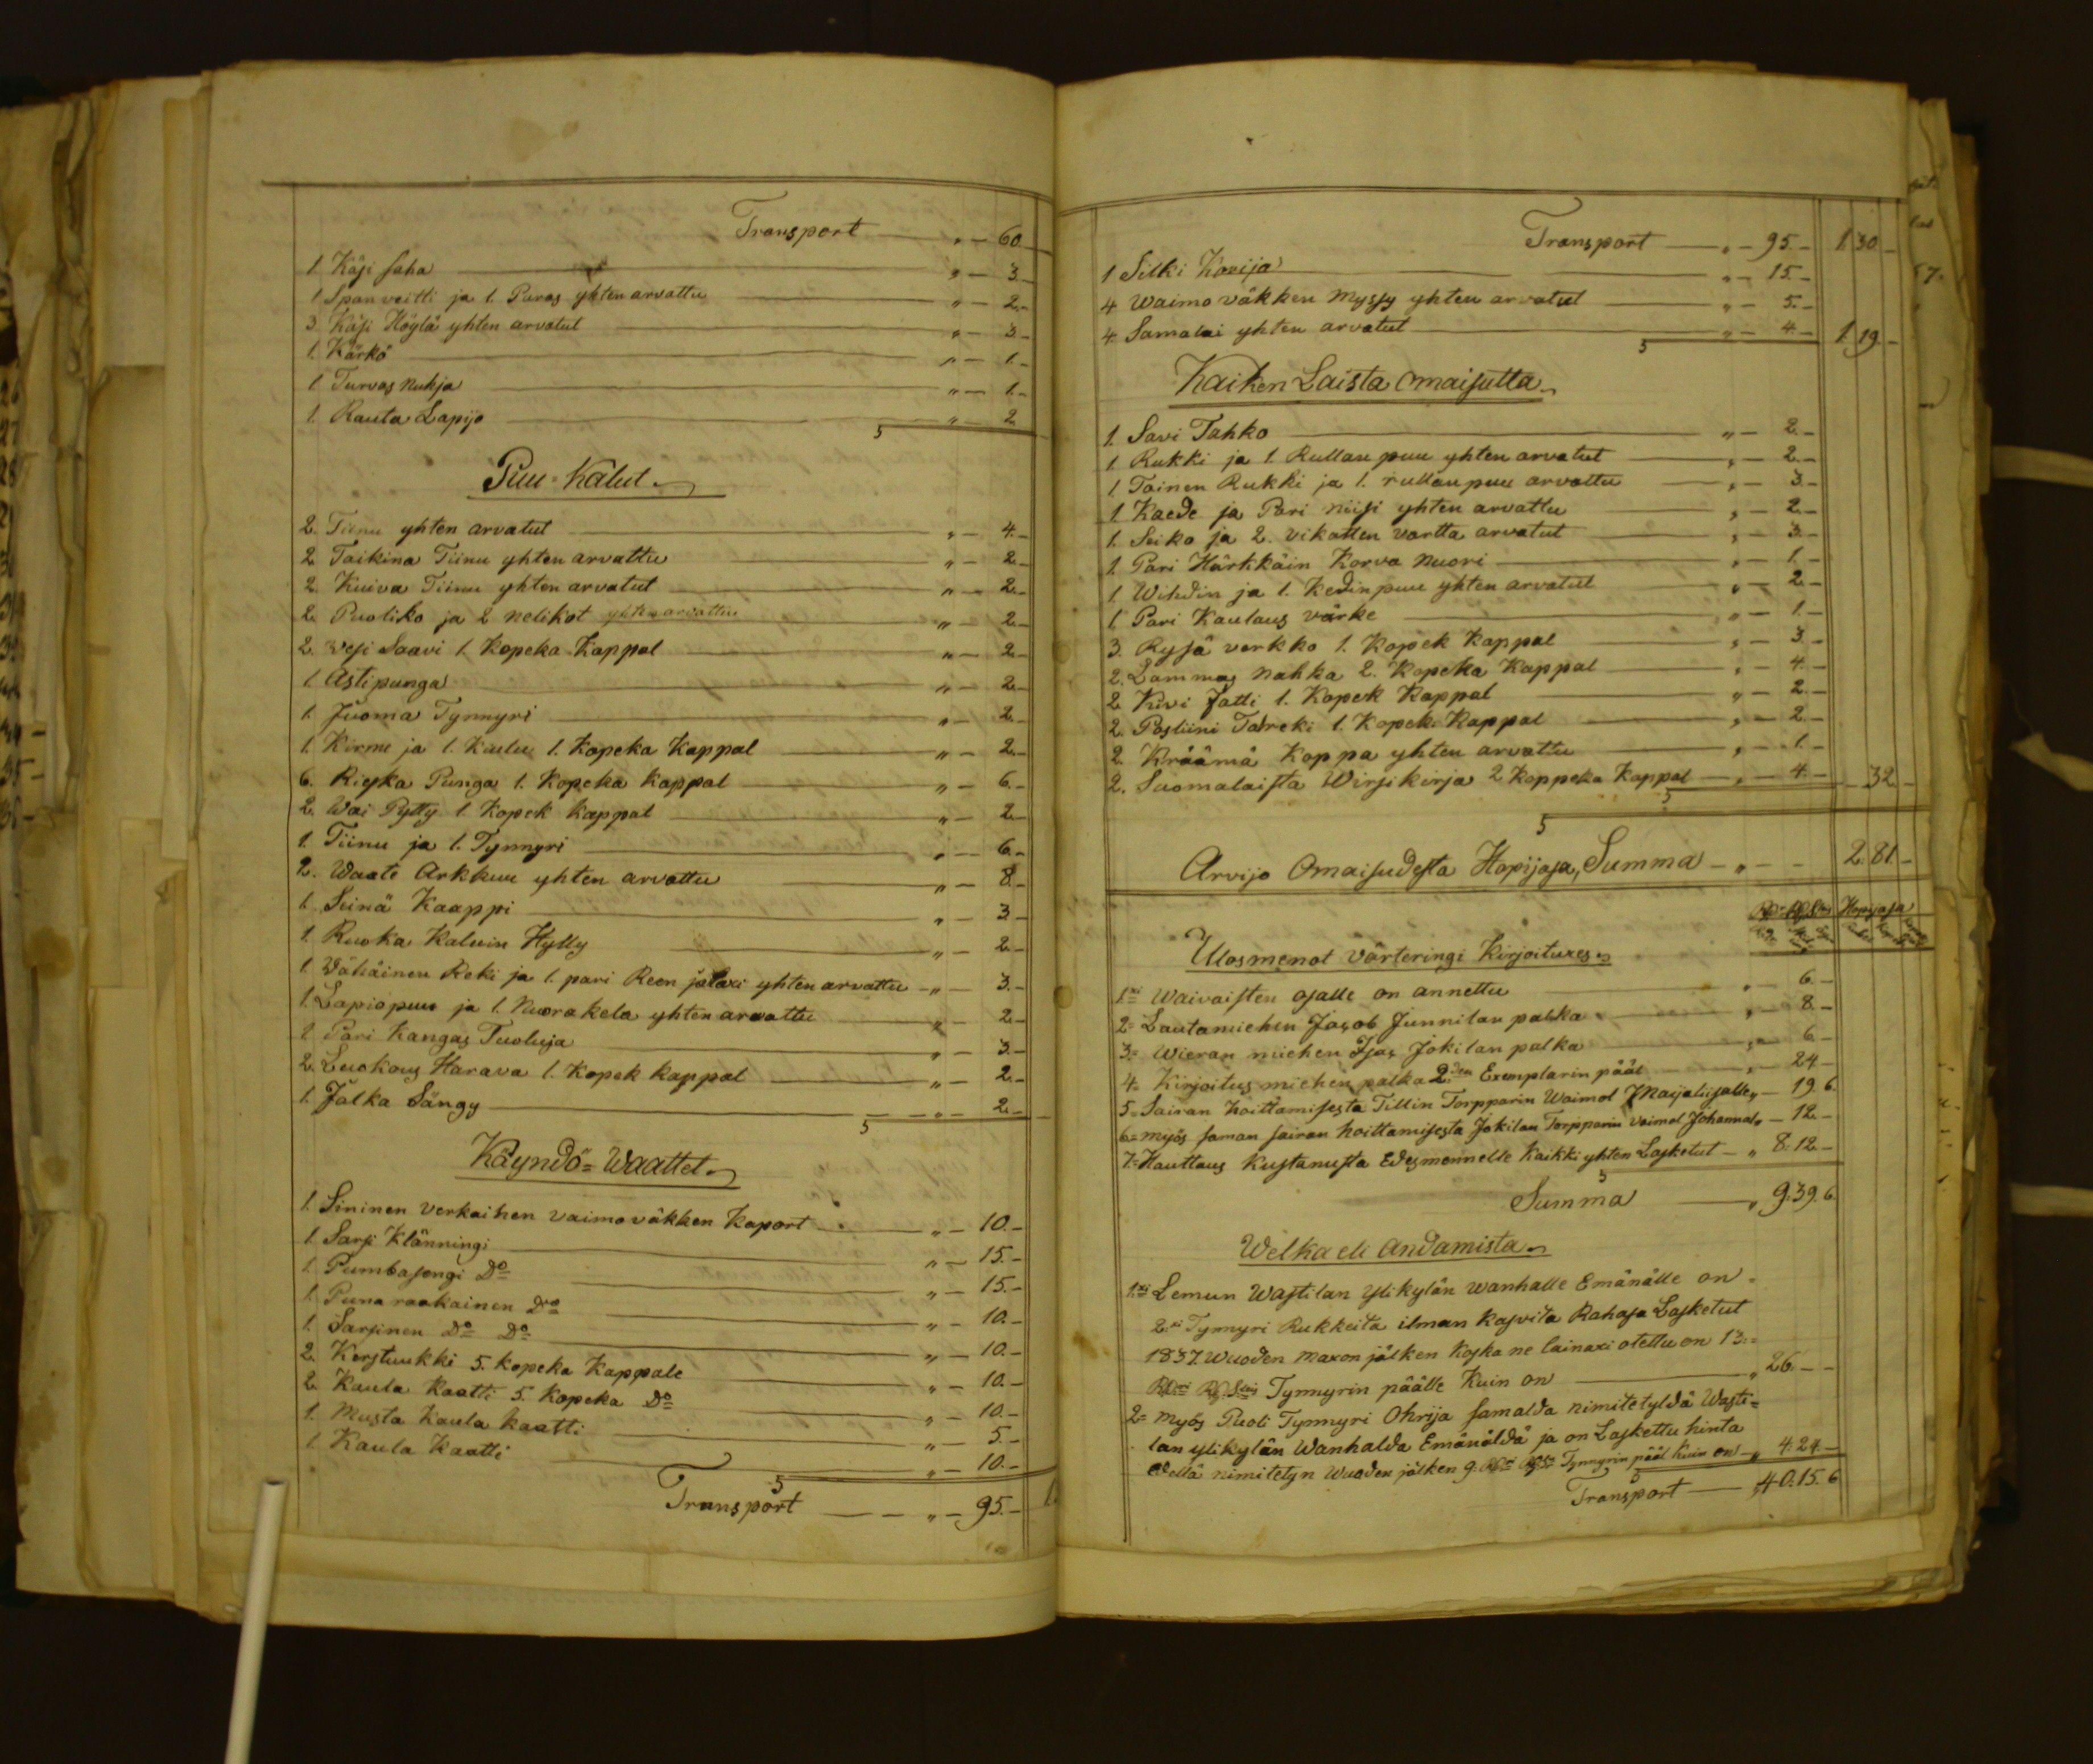 Transport — „ — 60
1 Käsi saha — „ — 3.
1 Span veitti ja 1. Puras yhten arvattu — „ — 2.
3. Käsi Höylä yhten arvatut — „ — 3
1. Kärkö — „ — 1.
1 Turvas nuhja — „ — 1.
1. Rauta Lapijo — „ — 2
Puu=Kalut
2. Tiinu yhten arvatut — „ — 4.
2. Taikina Tiinu yhten arvattu — „ — 2
2. Kuiva Tiinu yhten arvatut — „ — 2.
2. Puoliko ja 2 nelikot yhten arvattu — „ — 2
2. vesi Saavi 1. Kopeka Kappal — „ — 2
1. Astipunga — „ — 2.
1. Juoma Tynnyri — „ — 2.
1. Kirnu ja 1. Kiulu 1. Kopeka Kappal — „ — 2.
6. Rieska Punga 1. Kopeka kappal — „ — 6.
2. Woi Pytty 1. Kopek kappal — „ — 2.
1. Tiinu ja 1. Tynnyri — „ — 6.
2. Waate Arkkuu yhten arvattu — „ — 8.
1. Seinä Kaappi — „ — 3
1. Ruoka Kaluin Hylly — „ — 2.
1. Vähäinen Reki ja 1. pari Reen jalaxi yhten arvattu — „ — 3.
1. Lapiopuu ja 1. Nuorakela yhten arvattu — „ — 2.
1 Pari Kangas Tuoluja — „ — 3.
2. Luokous Harava 1. Kopek kappal — „ — 2.
1. Jalka Sängy — „ — 2
Käyndö=Waattet
1. Sininen verkainen vaimoväkken Kaport — „ — 10.
1. Sarsi Klänningi — „ — 15.
1. Pumbasengi Do — „ — 15.
1. Puna raakainen Do — „ — 10.
1. Sarsinen Do Do — „ — 10.
2. Kerstuukki 5. kopeka Kappale — „ — 10.
2. Kaula Kaatti 5. Kopeka Do — „ — 10.
1. Musta Kaula kaatti — „ — 5.
1. Kaula Kaatti — „ — 10.
Transport — „ — 95.
Transport — „ — 95. 1.30
1 Silki Korija — „ — 15.
4 Waimoväkken Myssy yhten arvatut — „ — 5.
4. Samalai yhten arvatut — „ — 4. 1.19.
Kaiken Laista Omaisutta
1. Savi Tahko — „ — 2.
1. Rukki ja 1. Rullan puu yhten arvatut — „ — 2.
1. Toinen Rukki ja 1. rullan puu arvattu — „ — 3.
1. Kaede ja Pari niisi yhten arvattu — „ — 2.
1. Seiko ja 2. vikatten vartta arvatut — „ — 3.
1. Pari Härkkäin Korva nuori — „ — 1.
1. Wihdin ja 1. Kedin puu yhten arvatut — „ — 2.
1. Pari Kaulaus värke — „ — 1.
3. Rysä verkko 1. Kopek Kappal — „ — 3
2. Lammas nahka 2. Kopeka Kappal — „ — 4.
2. Kivi Fatti 1. Kopek Kappal — „ — 2
2. Posliini Talreki 1. Kopek Kappal — „ — 2
2. Kräämä Koppa yhten arvattu — „ — 1.
2. Suomalaista Wirsikirja 2 Koppeka Kappal — „ — 4. 32
Arvijo Omaisudesta Hopijasa, Summa — „ — 2.81
Hopijasa
Ulosmenot värteringi Kirjoituxes
1.xi Waivaisten osalle on annettu — „ 6.
2= Lautamiehen Jacob Junnilan palka — „ 8
3= Wieran miehen Isac Jokilan palka — „ 6
4= Kirjoitus miehen palka 2:den Exemplarin pääl — „ 24
5= Sairan hoittamisesta Tillin Torpparin Waimol Maijaliisalle „ 19 6.
6= myös saman sairan hoittamisesta Jokilan Torpparin vaimol Johannal „ 12.
7= Hauttaus Kustanusta Edesmennelle Kaikki yhten Lasketut „ 8.12
Summa — „ 9.39.6.
Welka eli Andamista
1.xi Lemun Wastilan ylikylän wanhalle Emänälle on
2.xi Tynnyri Rukkeita ilman kasvita Rahasa Lasketut
1837. Wuoden maxon jälken koska ne lainaxi otettu on 13:
Tynnyrin päälle kuin on — „ 26.
2= myös Puoli Tynnyri Ohrija samalda nimitetyldä Wasti=
lan ylikylän Wanhalda Emänäldä ja on Laskettu hinta
edellä nimitetyn Wuoden jälken 9. Tynnyrin pääl kuin on „ 4.24.
Transport — „ 40.15.6